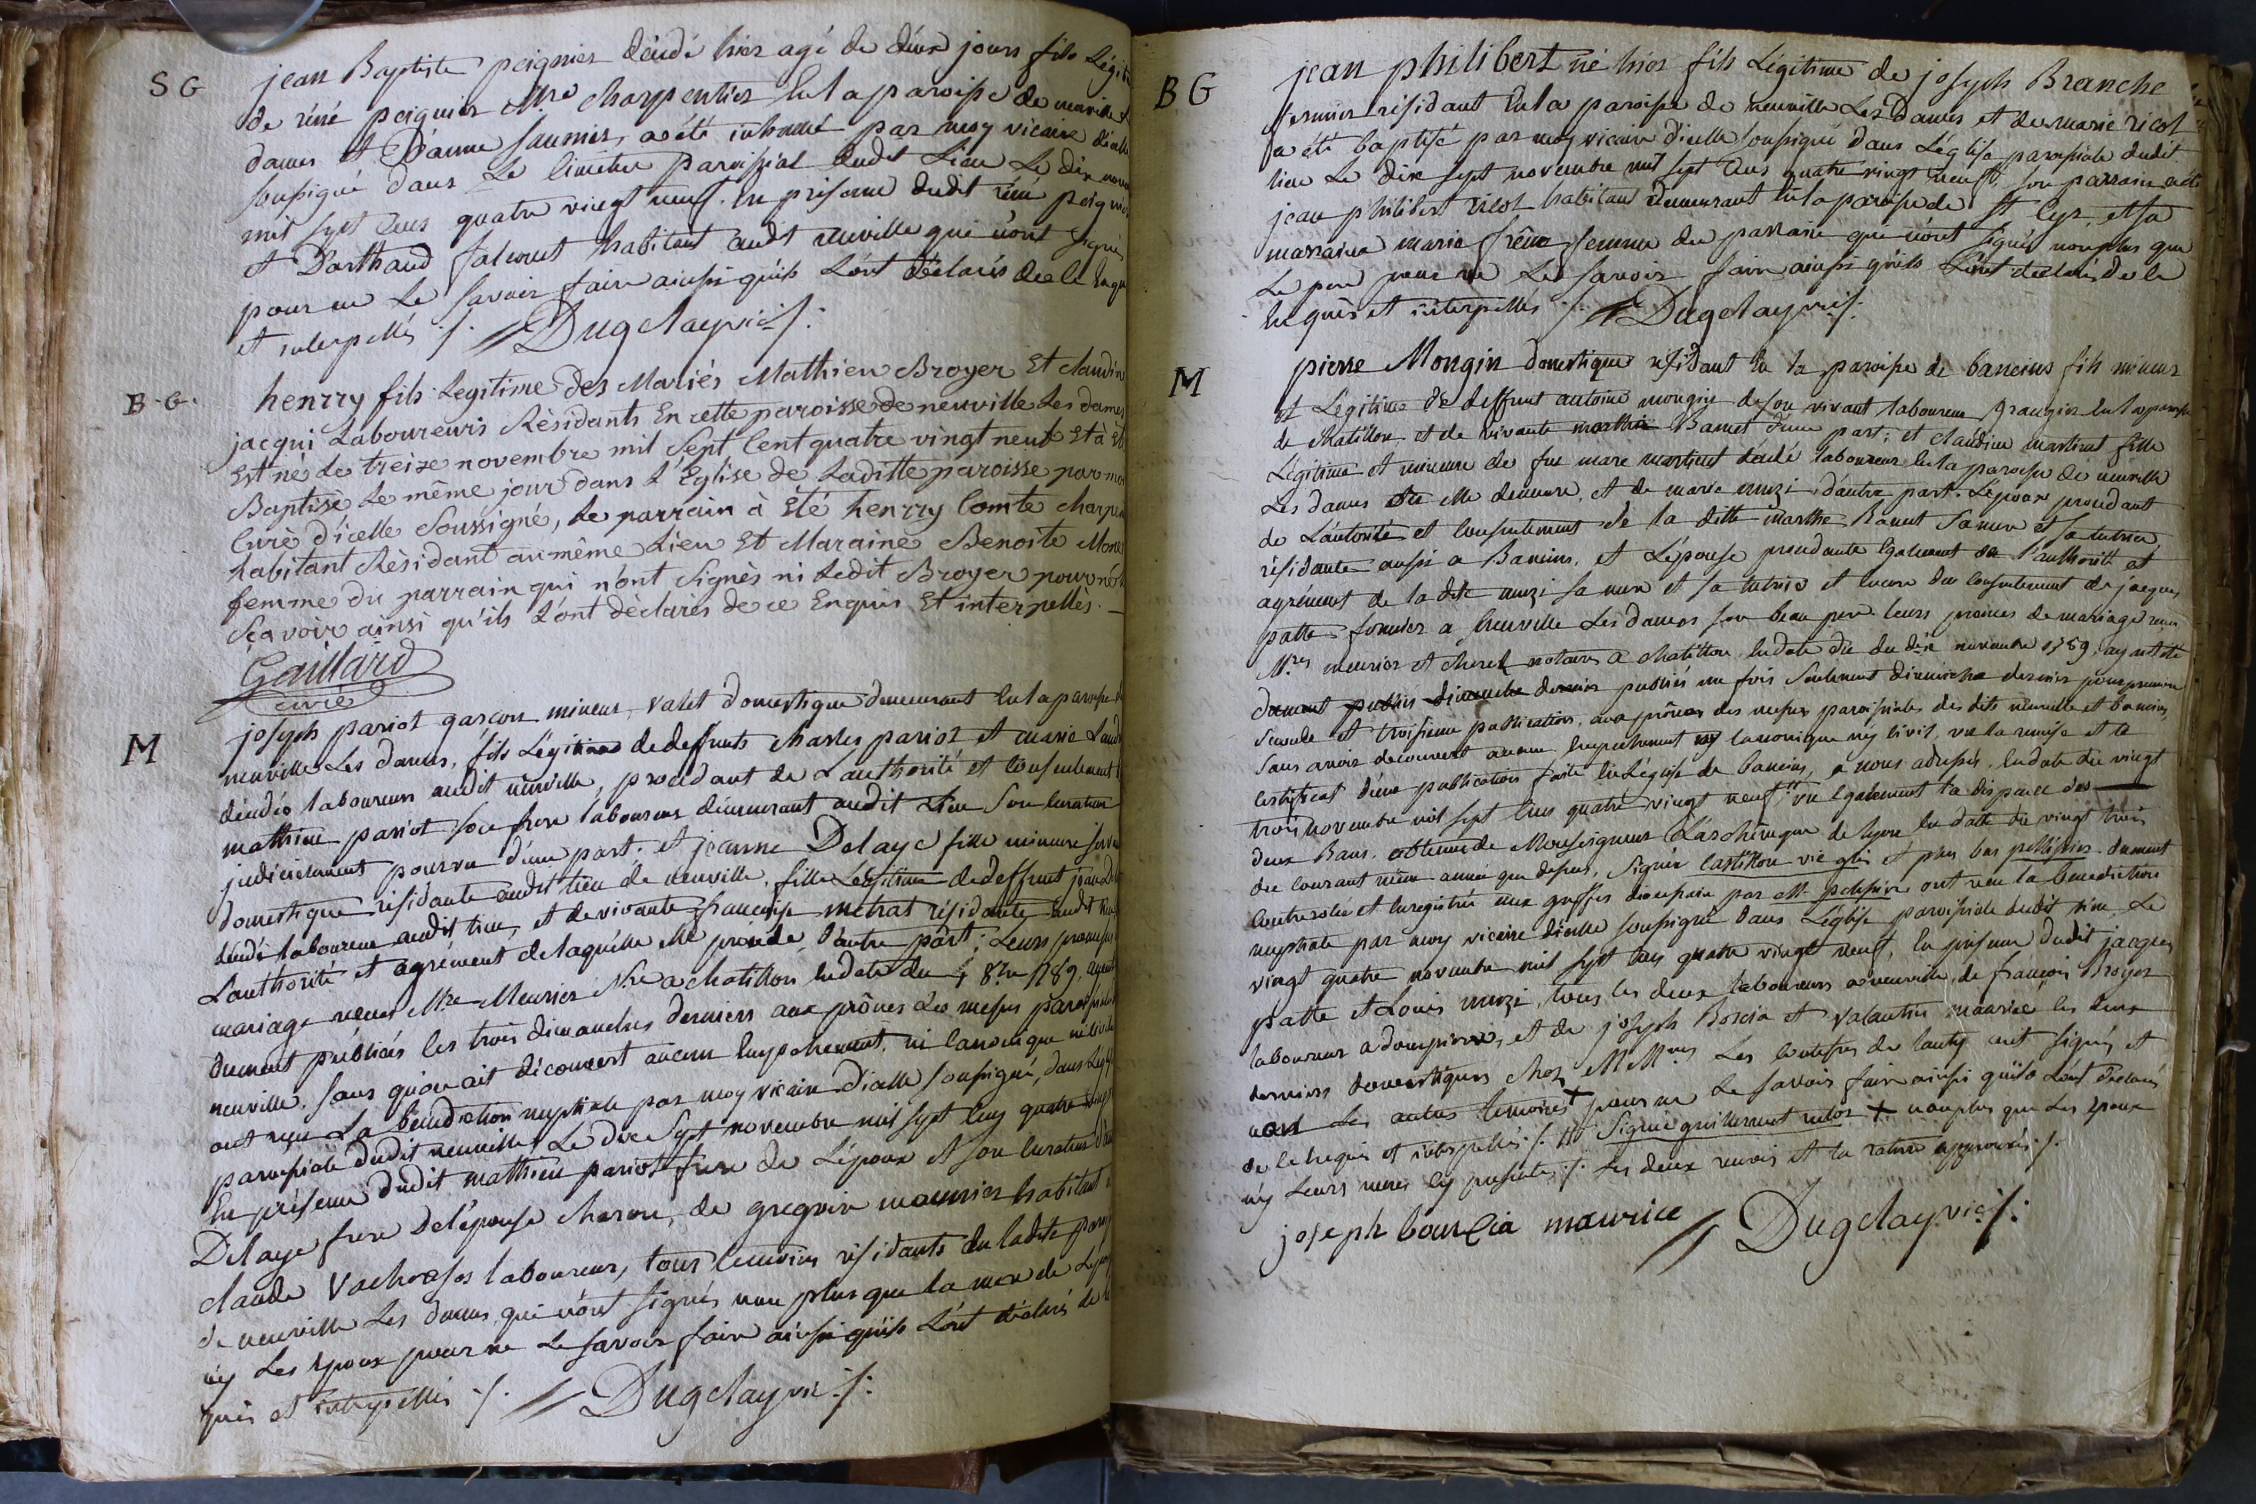 SG
jean Baptiste peignier décédé hier agé de deux jours fils Légit
de réné peignier Mre charpentier En la paroisse de neuville
dames et D'anne saunier, a été inhumé par moy vicaire d'icelle
soussigné dans Le Cimetiere paroissial dudit Lieu Le dix nove
mil sept Cens quatre vingt neuf. En presence dudit réné peignier
et Barthaud falconnet habitant audt neuville qui n'ont signé
pour ne Le savoir faire ainsi qu'ils L'ont déclarés de Ce Enqu
et interpellés ./. Dugelay vic ./.
B.G.
henrry fils Legitime des Mariés Mathieu Broyer Et claudin
jacqui Laboureurs Résidants En cette paroisse de neuville Les dames
Est né Le treize novembre mil Sept Cent quatre vingt neuf Et à Eté
Baptisé Le même jour dans L'Eglise de Laditte paroisse par moi
Curé d'icelle Soussigné, Le parrain à Eté henrry Comte charpen
habitant Résidant au même Lieu Et Maraine Benoite Mone
femme du parrain qui n'ont Signés ni Ledit Broyer pour ne
Sçavoir ainsi qu'ils L'ont déclarés de ce Enquis Et interpellés.
Gaillard
curé
M
joseph pariot garcon mineur, valet domestique demeurant En la paroisse de
neuville Les dames, fils Légitime de deffunts charles pariot et marie
décédés laboureurs audit neuville, procédant de L'authorité et Consentement
mathieu pariot son frere laboureur demeurant audit Lieu son Curateur
judiciairement pourvu d'une part. et jeanne Delaye fille mineure serva
domestique résidante audit lieu de neuville, fille Légitime de deffunt jean De
décédé laboureur audit lieu, et de vivante françoise metrat résidante audt lieu
L'authorité et agrément de laquelle elle procéde, d'autre part; Leurs promesses
mariage recues Mre Meunier Nre a chatillon En date du 8bre 1789, ayant
dument publiés les trois dimanches derniers aux prônes des messes paroissiales
neuville. sans qu'on ait découvert aucun Empechement, ni canonique ni civil
ont reçu La bénédiction nuptiale par moy vicaire d'icelle soussigné, dans L'eg
paroissiale dudit neuville Le dix Sept novembre mil sept Cens quatre vingt
En présence dudit mathieu pariot frere de L'époux et son Curateur
Delaye frere De l'épouse charon, de gregoire meunier habitant
claude Vachon laboureur, tous temoins résidants En ladite paroi
de neuville Les dames, qui n'ont signés non plus que la mere de L'epou
ny Les époux pour ne Le savoir faire ainsi qu'ils L'ont déclarés de
quis et interpellés ./. Dugelay vic ./.
BG
jean philibert né hier fils Légitime de joseph Branche
fermier résidant En la paroisse de neuville Les Dames et de marie ricol
a été baptisé par moy vicaire d'icelle soussigné dans L'église paroissiale dudit
lieu Le dix sept novembre mil sept Cens quatre vingt neuf. son parrain a été
jean philibert ricol habitant demeurant En la paroisse de St Cyr, et sa
marraine marie frême femme du parrain qui n'ont signés non plus que
Le pere pour ne Le savoir faire ainsi qu'ils L'ont déclarés de Ce
Enquis et interpellés ./. Dugelay vic ./.
M
pierre Mongin domestique résidant En la paroisse de baneins fils mineur
et Légitime de deffunt antoine mongin de son vivant laboureur granger En la paroisse
de Chatillon et de vivante marthe Banet d'une part; et claudine martinet fille
Légitime et mineure de feu marc martinet décédé laboureur En la paroisse de neuville
Les dames où elle demeure, et de marie muzi d'autre part. L'epoux procédant
de L'autorité et Consentement de la ditte marthe Banet sa mere et sa tutrice
résidante aussi a Baneins, et L'épouse procédante également de l'authorité et
agrément de la dite muzi sa mere et sa tutrice et encore du consentement de jacques
patte fermier a Neuville Les dames son beau pere leurs promesses de mariage recues
Mres meunier et cherel notaires a chatillon En date du dix novembre 1789, ayant été
dument publiés dimanche dernier publiés une fois Seulement dimanche dernier pour premiere
seconde et troisieme publication, aux prônes des messes paroissiales des dits neuville et baneins,
sans avoir decouvert aucun Empechement ny Canonique ny Civil, vu la remise et le
certificat d'une publication faite En L'église de baneins, a nous adressés, En date du vingt
trois novembre mil sept Cens quatre vingt neuf; vu également la dispense des
deux Bans, obtenue de Monseigneur L'archevêque de Lyon En date du vingt trois
du courant même année que dessus, Signée Castillon vic gal et plus bas pellissier dument
Controlée et Enregistrée aux greffes diocesain par M. pelissier ont recu la benediction
nuptiale par moy vicaire d'icelle soussigné dans L'église paroissiale dudit Lieu Le
vingt quatre novembre mil sept Cens quatre vingt neuf, En présence dudit jacques
patte et Louis muzi, tous les deux laboureurs a neuville, de françois Broyer
laboureur a dompierre, et de joseph Borcia et valentin maurice les deux
derniers domestiques chez MMres Les Comtesses de Cauty ont signés, et
non les autres temoins + pour ne Le savoir faire ainsi qu'ils L'ont Déclarés
de Ce Enquis et interpellés ./. Signé guillermet + non plus que Les époux
n'y Leurs meres Cy présentes ./. Les deux renvois et la rature approuvés ./.
joseph bourcia maurice Dugelay vic ./.